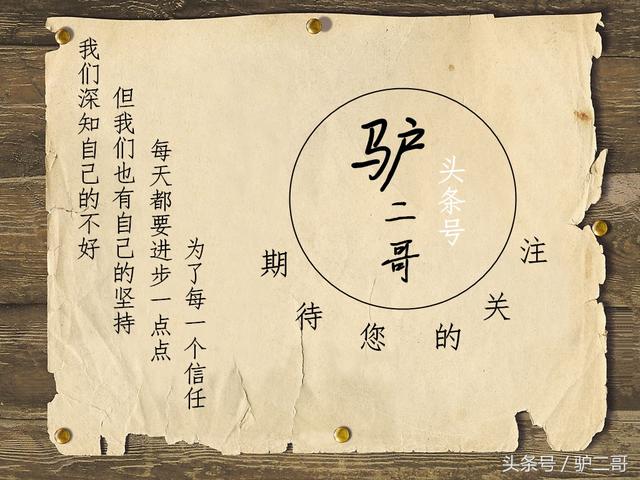 我们深知自己的不好
但我们也有自己的坚持
每天都要进步一点点
为了每一个信任
驴二哥
头条号
期待您的关注
头条号/驴二哥